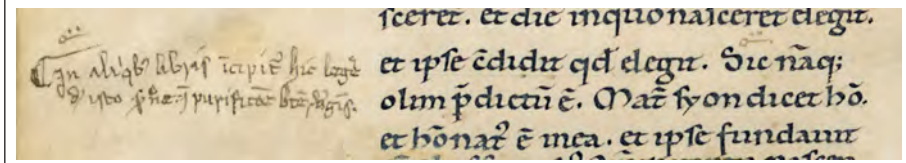 In aliqb' libris īcipit' hic legē
d' isto
purificāe btē v̄gīs.
sceret. et die inquo nasceret elegit.
et ipse c̄didit qđ elegit. Sic nāq;
olim p̄dictū ē. Mat̄ syon dicet hō.
et hō nat' ē in ea. et ipse fundauit